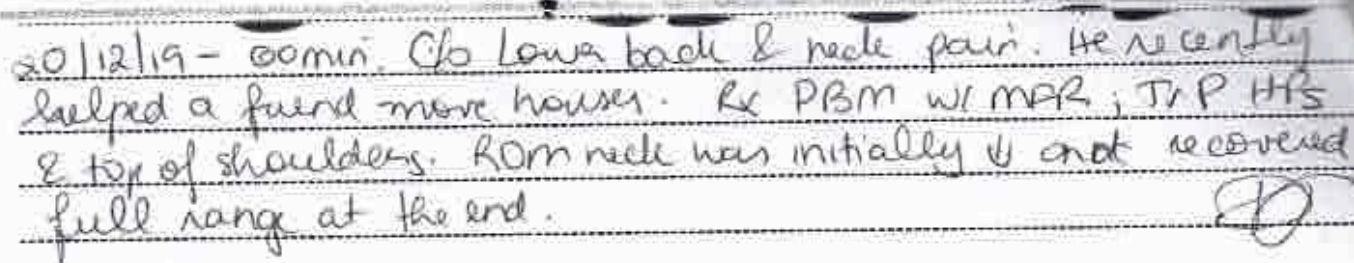 20/12/19 - 60min. C/o Lower back & neck pain. He recently
helped a friend move houses. Rx DBM w/ MFR; TrP HPs
& top of shoulders. ROM neck was initially ↓ and recovered
full range at the end.